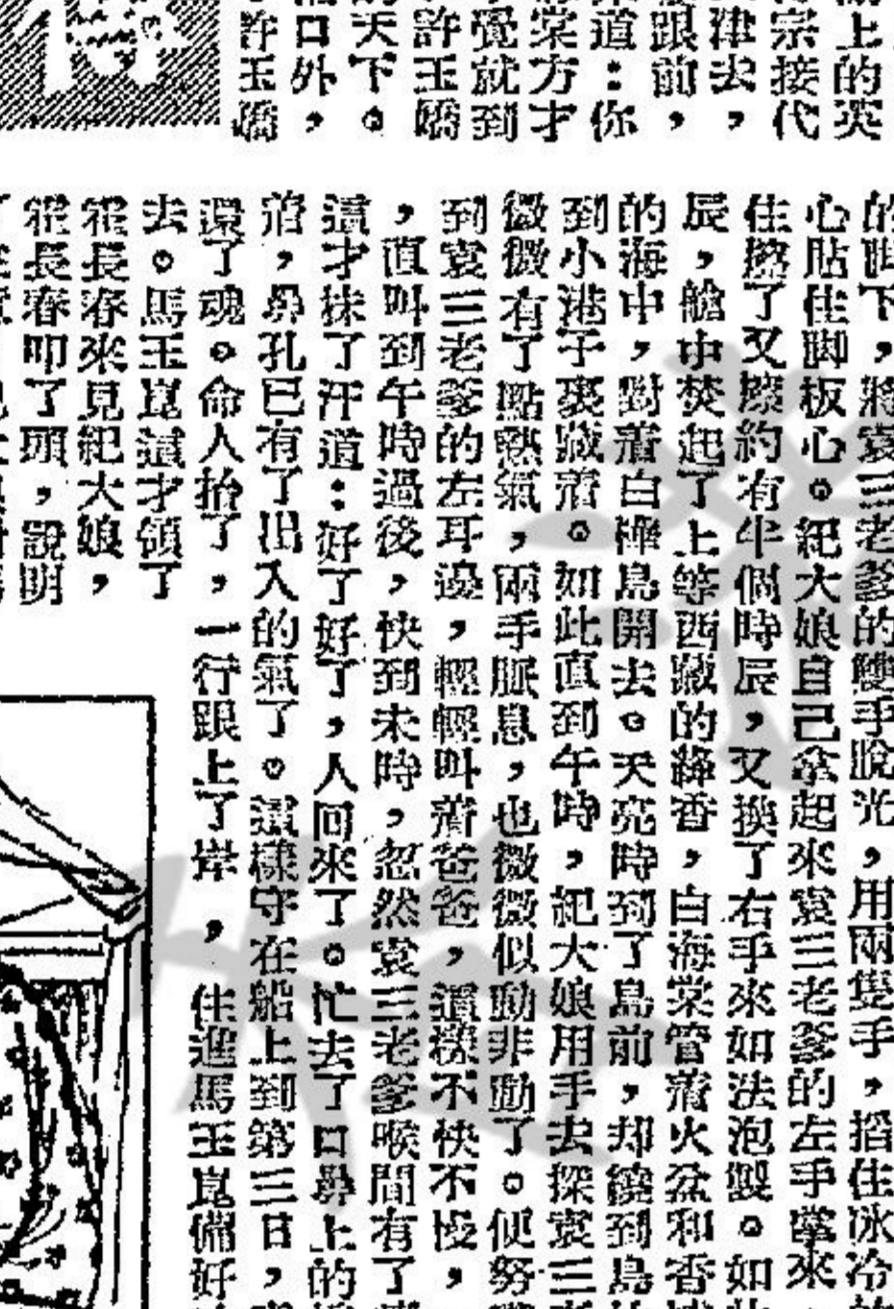 上的英
宗接代
津去，
跟前，
道：你
棠方才
覺就到
許玉嬌
天下。
口外，
許玉嬌
傳
的脚下，將袁三老爹的雙手脫光，用兩隻手，搯住冰冷
心貼住脚板心。紀大娘自己拿起來袁三老爹的左手掌來
住擦了又擦約有半個時辰，又換了右手來如法泡製。如
辰，艙中焚起了上等西藏的絳香，白海棠管着火盆和香
的海中，對着白樺島開去。天亮時到了島前，却繞到島
到小港子裏藏着。如此直到午時，紀大娘用手去探袁三
微微有了點熱氣，兩手脈息，也微微似動非動了。便努
到袁三老爹的左耳邊，輕輕叫着爸爸，這樣不快不慢，
，直叫到午時過後，快到未時，忽然袁三老爹喉間有了
這才抹了汗道：好了好了，人回來了。忙去了口鼻上的
着，鼻孔已有了出入的氣了。這樣守在船上到第三日，
還了魂。命人抬了，一行跟上了岸，住進馬玉崑備好
去。馬玉崑這才領了
霍長春來見紀大娘，
霍長春叩了頭，說明